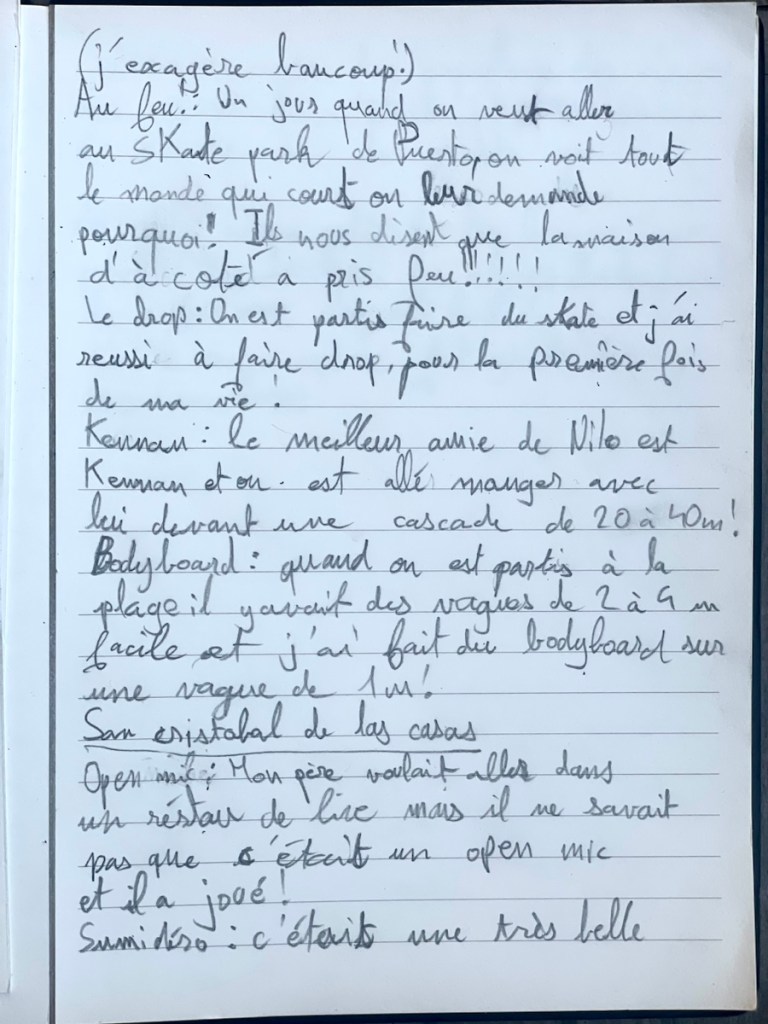 (j'exagère baucoup!)
Au feu!: Un jour quand on veut aller
au SKate park de Puerto, on voit tout
le monde qui court on leur demande
pourquoi! Ils nous disent que la maison
d'à coté a pris feu!!!!!!
Le drop: On est partis faire du skate et j'ai
reussi à faire drop, pour la première fois
de ma vie!
Kennan: le meilleur amie de Nilo est
Kennan et on est allé manger avec
lui devant une cascade de 20 à 40m!
Bodyboard: quand on est partis à la
plage il yavait des vagues de 2 à 4 m
facile et j'ai fait du bodyboard sur
une vague de 1m!
San cristobal de las casas
Open mic: Mon père voulait aller dans
un réstau de live mais il ne savait
pas que c'était un open mic
et il a joué!
Sumidéro: c'étais une très belle